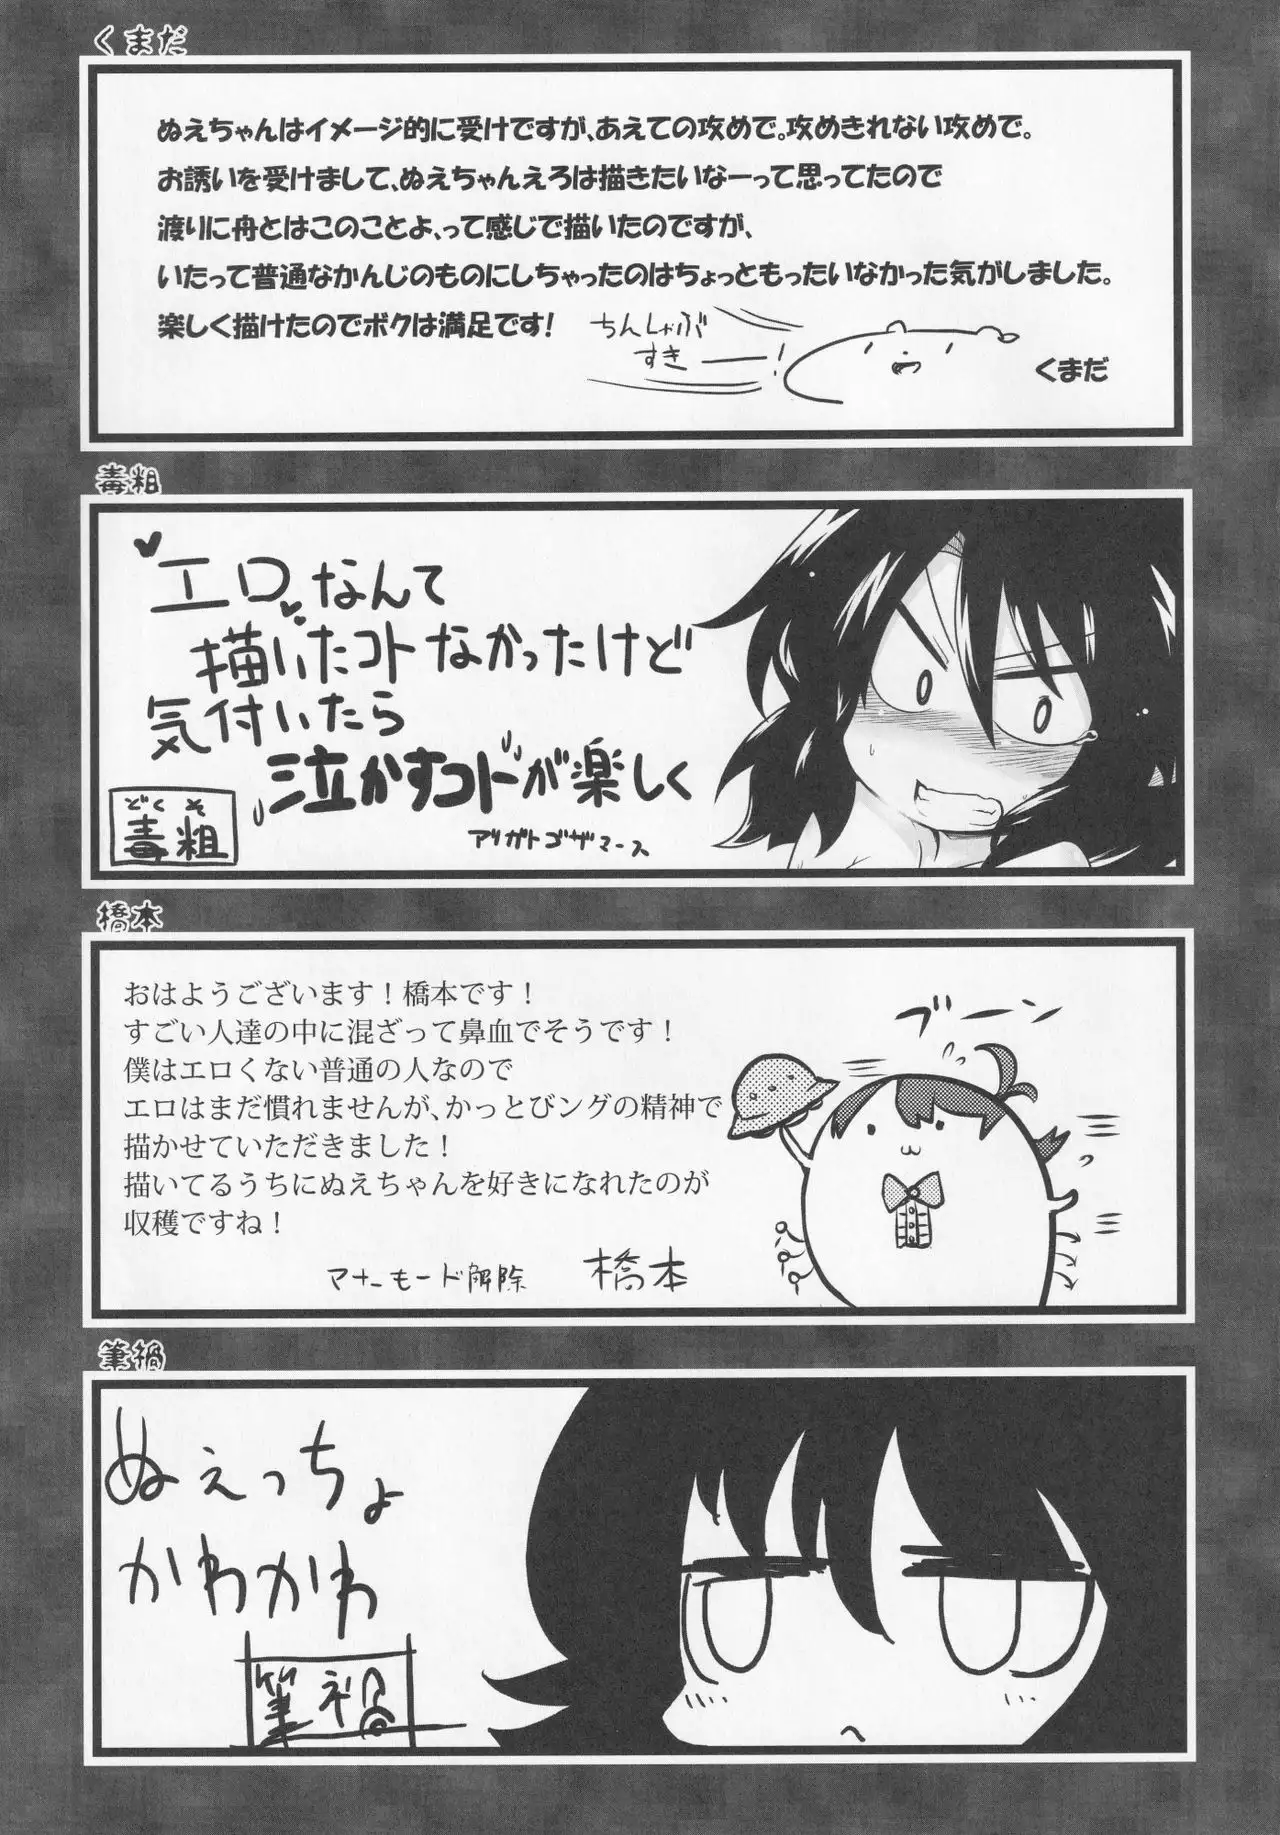 くまだ
ぬえちゃんはイメージ的に受けですが、あえての攻めで。攻めきれない攻めで。
お誘いを受けまして、ぬえちゃんえろは描きたいなーって思ってたので
渡りに舟とはこのことよ、って感じで描いたのですが、
いたって普通なかんじのものにしちゃったのはちょっともったいなかった気がしました。
楽しく描けたのでボクは満足です!
ちんしゃぶ
すき――!
くまだ
毒粗
エロなんて
描いたコトなかったけど
気付いたら
泣かすコトが楽しく
アリガトゴザマース
どくそ
毒粗
橋本
おはようございます！橋本です！
すごい人達の中に混ざって鼻血でそうです！
僕はエロくない普通の人なので
エロはまだ慣れませんが、かっとびングの精神で
描かせていただきました！
描いてるうちにぬえちゃんを好きになれたのが
収穫ですね！
マナーモード解除
橋本
ブーン
筆禍
ぬえっちょ
かわかわ
筆禍